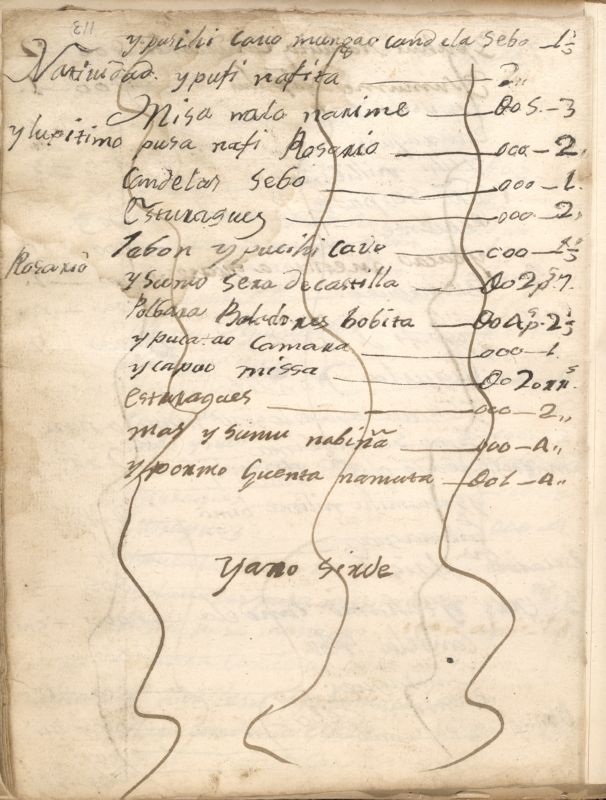 113
y pusihi cavo mungao candela sebo — 1½
Natiuidad y pufi nafita — 2"
Misa nalo narime — 00S – 3
y lupitimo pura nafi Rosario — 000 – 2"
Candelas sebo — 000 – 1
Esturaques — 000 – 2"
Rosario Jabon y pucihi cavo — 000 –
y sumo sera de castilla — 002ps 7
Polbara Boladores bobita — 004ps 2½
y pucatao Camara — 000 – 1
y capuo missa — 002
esturaques — 000 – 2"
mas y sumu nabiña — 000 – 4"
y pormo Guenta namuta — 001 – 4"
Yano sirde